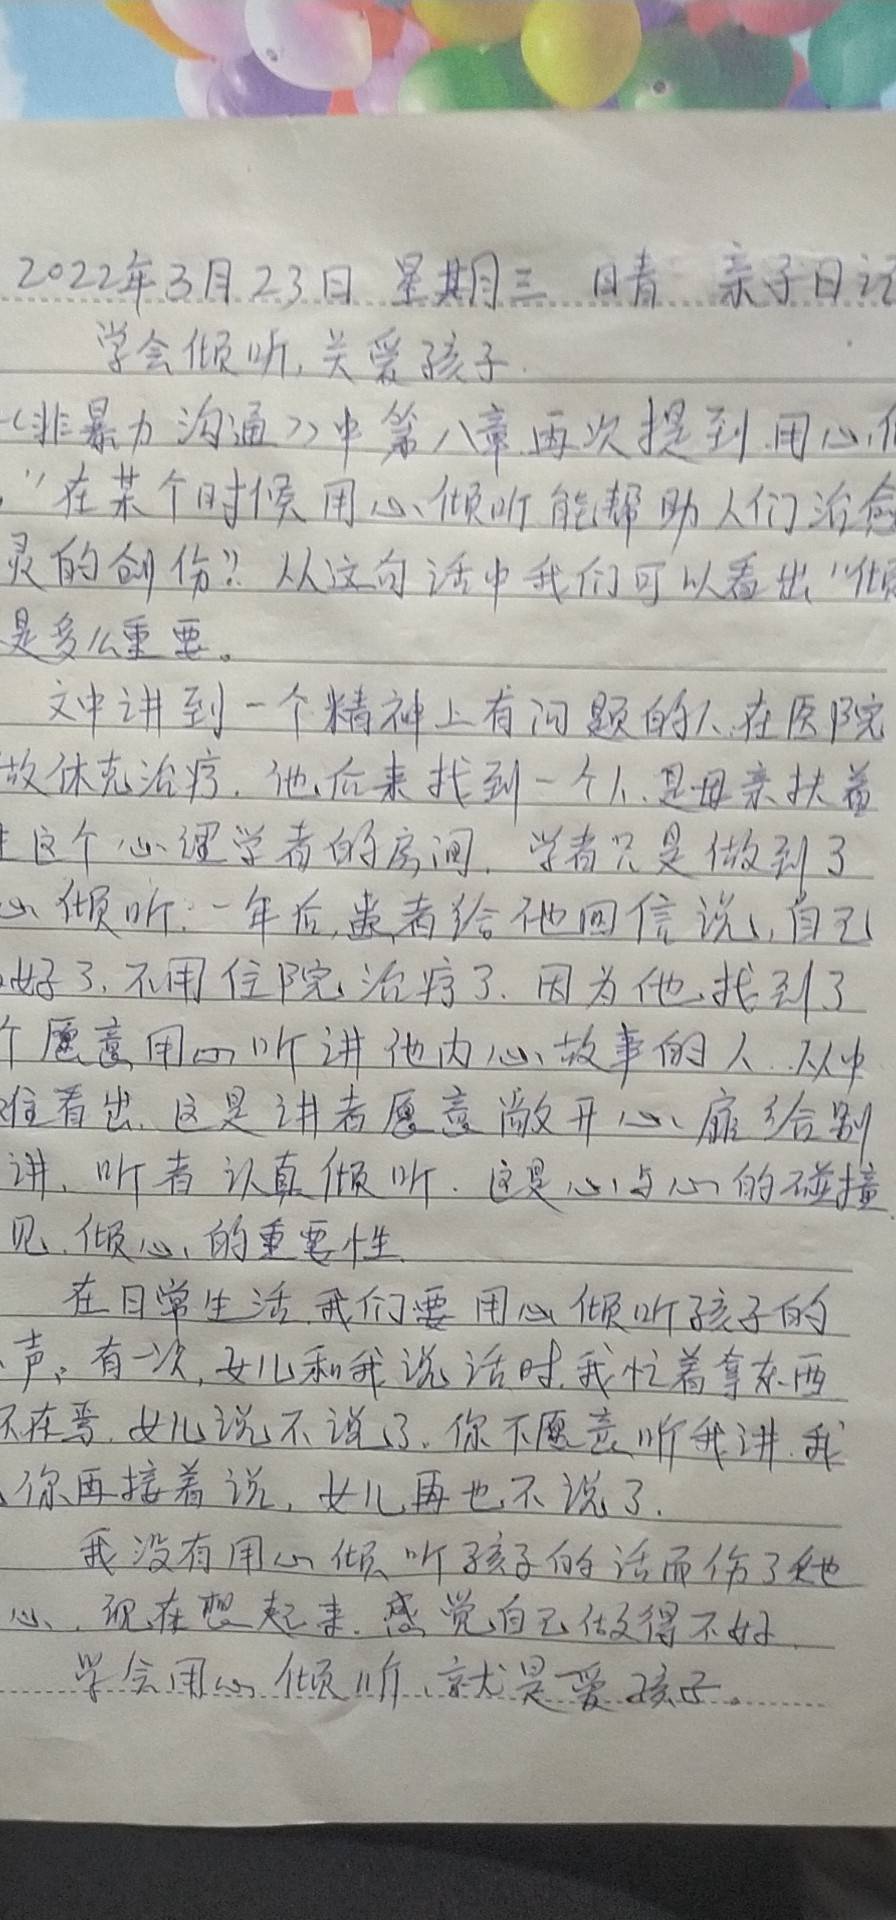 2022年3月23日 星期三 晴 亲子日记
学会倾听,关爱孩子.
《非暴力沟通》中第八章再次提到用心
"在某个时候用心倾听能帮助人们治愈
灵的创伤"。从这句话中我们可以看出"倾
是多么重要。
文中讲到一个精神上有问题的人,在医院
做休克治疗.他后来找到一个人,是母亲扶着
这个心理学者的房间,学者只是做到了
心倾听.一年后,患者给他回信说,自己
好了,不用住院治疗了.因为他找到了
个愿意用心听讲他内心故事的人..从中
难看出,这是讲者愿意敞开心扉给别
讲,听者认真倾听.这是心与心的碰撞.
见,倾心的重要性.
在日常生活,我们要用心倾听孩子的
声。有一次,女儿和我说话时,我忙着拿东西
不在焉,女儿说不说了,你不愿意听我讲.我
你再接着说,女儿再也不说了.
我没有用心倾听孩子的话而伤了她
心,现在想起来,感觉自己做得不好.
学会用心倾听,就是爱孩子。